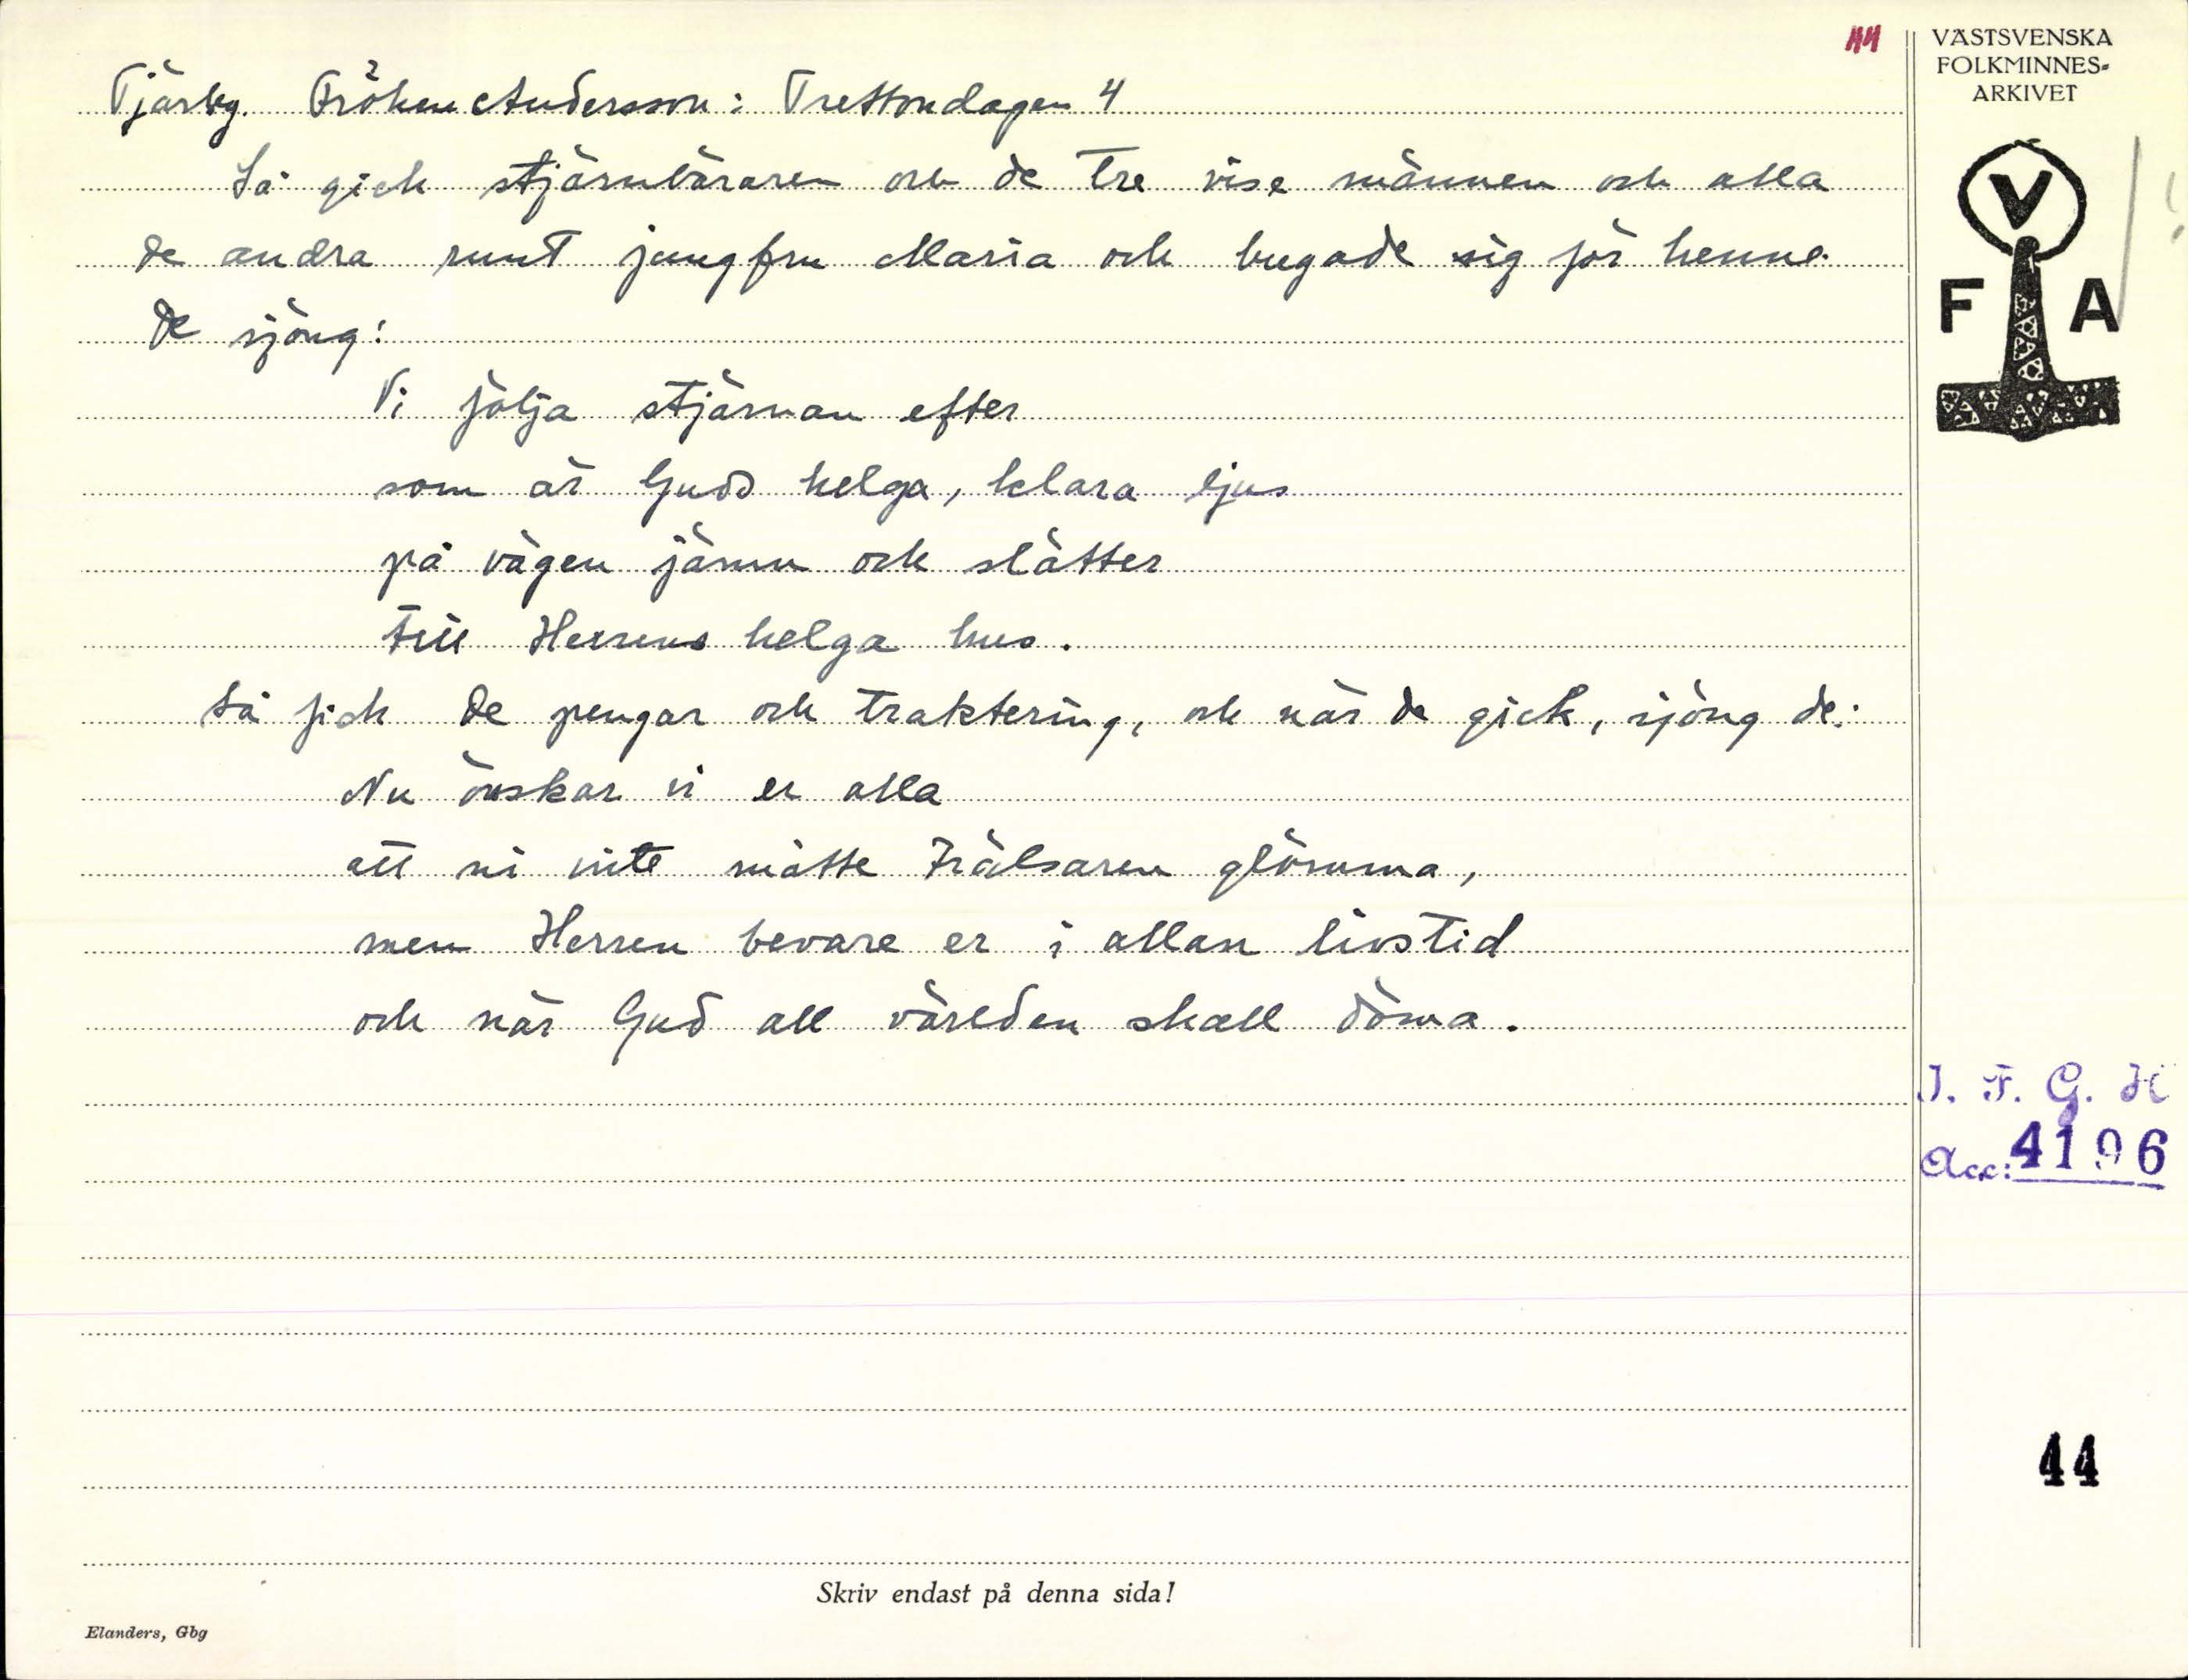 44
VÄSTSVENSKA
FOLKMINNES-
ARKIVET
Tjärby. Fröken Andersson: Trettondagen 4
Så gick stjärnbäraren och de tre vise männen och alla
de andra runt jungfru Maria och bugade sig för henne.
De sjöng:
Vi följa stjärnan efter
som är Guds helga, klara ljus
på vägen jämn och slätter
till Herrens helga hus.
Så fick de pengar och traktering, och när de gick, sjöng de:
Nu önskar vi er alla
att ni inte måtte Frälsaren glömma,
men Herren bevare er i allan livstid
och när Gud all världen skall döma.
V
F A
I. F. G. H
Acc: 4196
44
Skriv endast på denna sida!
Elanders, Gbg